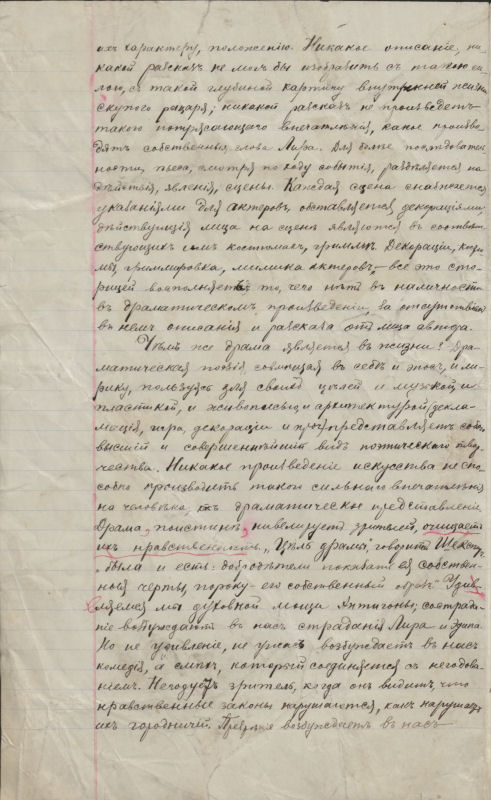 ихъ характеру, положенію. Никакое описаніе, ни
какой разсказъ не могъ бы изобразить съ такою си-
лою, съ такой глубиной картину внутренней жизни
скупого рыцаря; никакой разсказъ не произведетъ
такого потрясающаго впечатлѣнія, какое произво-
дятъ собственныя слова Лира. Для болѣе послѣдователь
ности, пьеса, смотря по ходу событія, раздѣляется на
дѣйствія, явленія, сцены. Каждая сцена снабжается
указаніями для актеровъ, обставляется декораціями,
дѣйствующія лица на сценѣ являются въ соотвѣт-
ствующихъ имъ костюмахъ, гриммѣ. Декораціи, костю
мы, гриммировка, мимика актеровъ,— все это сто-
рицей восполняетъ то, чего нѣтъ въ наличности
въ драматическомъ произведеніи, за отсутствіемъ
въ немъ описанія и разсказа отъ лица автора.
Чѣмъ же драма является въ жизни? Дра-
матическая поэзія, совмѣщая въ себѣ и эпосъ, и ли-
рику, пользуясь для своихъ цѣлей и музыкой, и
пластикой, и живописью и архитектурой (декла-
мація, игра, декорации и пр.) представляетъ собой
высшій и совершеннѣйшій видъ поэтическаго твор-
чества. Никакое произведеніе искусства неспо-
собно производить такого сильнаго впечатлѣнія
на человѣка, какъ драматическое представленіе.
Драма, поистинѣ, зрителей, очищаетъ
ихъ нравственно. „Цѣль драмы," говоритъ Шекспиръ,
„была и есть: добродѣтели показать ея собствен-
ныя черты, пороку его собственный образъ." Удив-
ляемся мы духовной мощи Антигоны; состраda-
ніе возбуждаютъ въ насъ страданія Лира и Эдипа.
Но не удивленіе, не ужасъ возбуждаетъ въ насъ
комедія, а смѣхъ, который соединяется съ негодова-
ніемъ. Негодуетъ зритель, когда онъ видитъ, что
нравственные законы нарушаются, какъ нарушаетъ
ихъ городничій. возбуждаетъ въ насъ